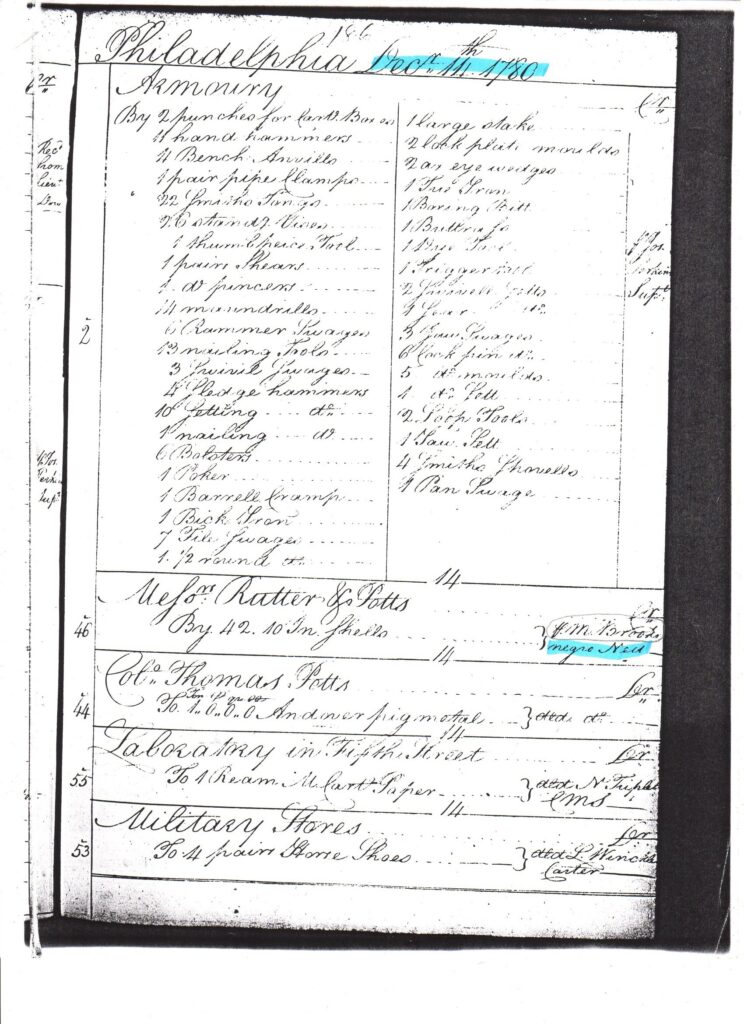 186
Philadelphia Decr. 14th 1780
Armoury Cr
By 2 punches for Cartd. Boxes
4 hand hammers
4 Bench Anvills
1 pair pipe Clamps
22 Smiths Tongs
26 stand g Vises
1 thumb peice Tool
1 pair Shears
1 do pincers
14 maundrills
6 Rammer Swages
13 nailing Tools
3 Swivil Swages
4 Sledge hammers
10 Setting do
1 nailing do
6 Bolsters
1 Poker
1 Barrell Cramp
1 Bick Iron
7 File Swages
1 1/2 round do
1 large stake
2 lock plate moulds
2 ax eye wedges
1 Tue Iron
1 Boring Bitt
1 Buttress
1 Tool
1 Trigger tool
2 Swivell
4 do
3 Jaw Swages
6 lock pin do
5 do moulds
1 do Sett
2 Loop Tools
1 Saw Sett
4 Smiths Shovells
1 Pan Swage
2
14
Messrs. Rutter & Potts Cr
46 By 42. 10 In Shells } M. Brooks
negro Ned
14
Colo. Thomas Potts Dr
44 To 1..0..0..0 Andover pig metal } dtd. do
14
Laboratry in Fifth Street Dr
55 To 1 Ream M Cart. Paper } dtd N Triplet
CMS
14
Military Stores Dr
53 To 4 pairs Horse Shoes } dtd L Winckl
Carter